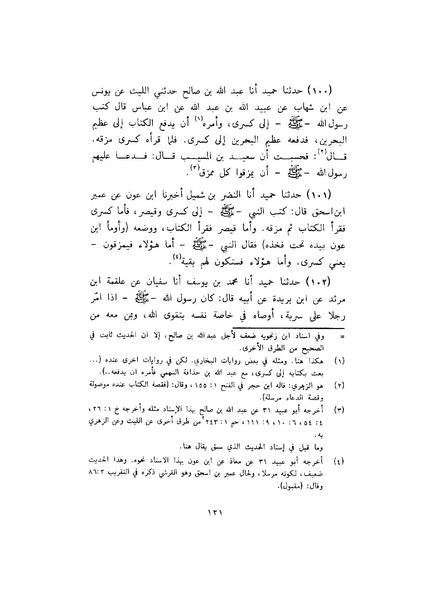 (١٠٠) حدثنا حميد أنا عبد الله بن صالح حدثني الليث عن يونس
عن ابن شهاب عن عبيد الله بن عبد الله عن ابن عباس قال كتب
رسول الله -ﷺ- إلى كسرى، وأمره(١) أن يدفع الكتاب إلى عظيم
البحرين، فدفعه عظيم البحرين إلى كسرى. فلما قرأه كسرى مزقه.
قال(٢): فحسبت أن سعيد بن المسيب قال: فدعا عليهم
رسول الله -ﷺ- أن يمزقوا كل ممزق(٣).
(١٠١) حدثنا حميد أنا النضر بن شميل أخبرنا ابن عون عن عمير
ابن اسحق قال: كتب النبي -ﷺ- إلى كسرى وقيصر، فأما كسرى
فقرأ الكتاب ثم مزقه. وأما قيصر فقرأ الكتاب، ووضعه (وأومأ ابن
عون بيده تحت فخذه) فقال النبي -ﷺ- أما هؤلاء فيمزقون -
يعني كسرى. وأما هؤلاء فستكون لهم بقية(٤).
(١٠٢) حدثنا حميد أنا محمد بن يوسف أنا سفيان عن علقمة ابن
مرثد عن ابن بريدة عن أبيه قال: كان رسول الله -ﷺ- اذا امّر
رجلا على سرية، أوصاه في خاصة نفسه بتقوى الله، وبمن معه من
= وفي اسناد ابن زنجويه ضعف لأجل عبدالله بن صالح، إلا ان الحديث ثابت في
الصحيح من الطرق الأخرى.
(١) هكذا هنا. ومثله في بعض روايات البخاري. لكن في روايات اخرى عنده (...
بعث بكتابه إلى كسرى، مع عبد الله بن حذافة السهمي فأمره ان يدفعه..).
(٢) هو الزهري: قاله ابن حجر في الفتح ١: ١٥٥، وقال: (فقصة الكتاب عنده موصولة
وقصة الدعاء مرسلة).
(٣) أخرجه أبو عبيد ٣١ عن عبد الله بن صالح بهذا الإسناد مثله وأخرجه خ ١: ٢٦،
٤: ٥٤، ٦: ١٠، ٩: ١١١، حم ١: ٢٤٣ من طرق أخرى عن الليث وعن الزهري
به.
وما قيل في إسناد الحديث الذي سبق يقال هنا.
(٤) أخرجه أبو عبيد ٣١ عن معاذ عن ابن عون بهذا الاسناد نحوه. وهذا الحديث
ضعيف، لكونه مرسلا، ولحال عمير بن اسحق وهو القرشي ذكره في التقريب ٢: ٨٦
وقال: (مقبول).
١٢١